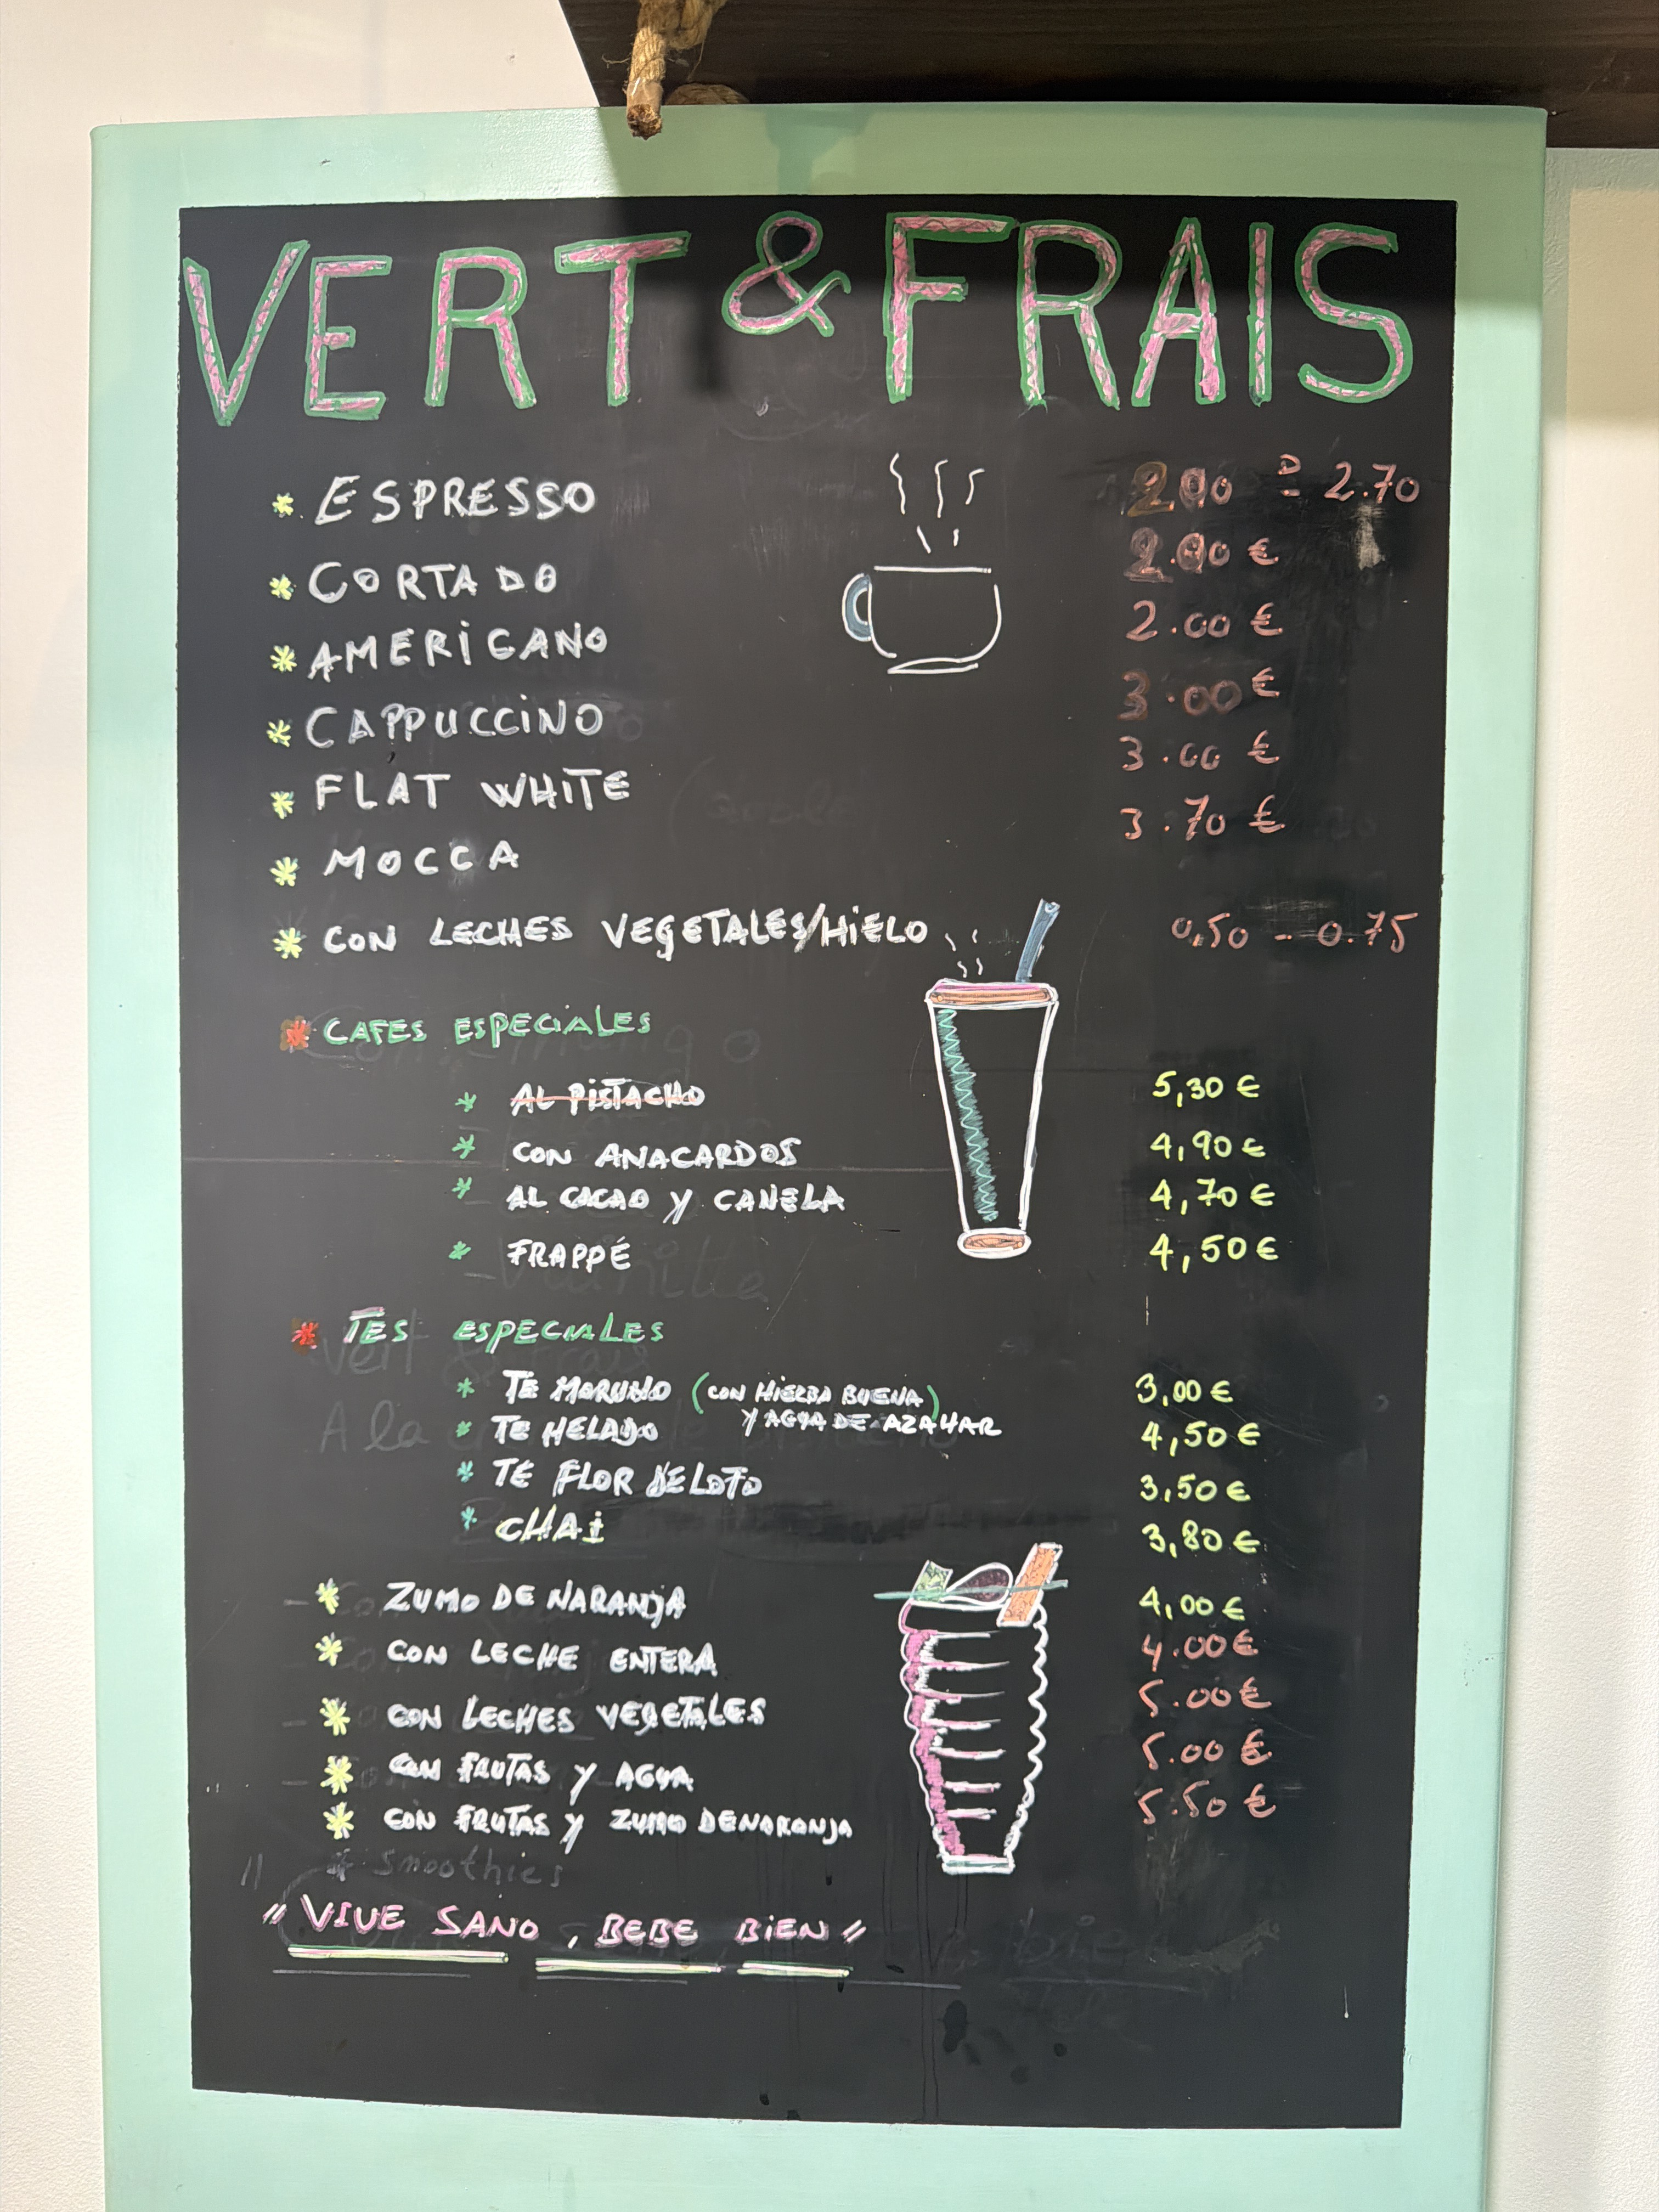 VERT & FRAIS
* ESPRESSO 2.00 D = 2.70
* CORTADO 2.00 €
* AMERICANO 2.00 €
* CAPPUCCINO 3.00 €
* FLAT WHITE 3.00 €
* MOCCA 3.70 €
* CON LECHES VEGETALES/HIELO 0,50 - 0.75
* CAFES ESPECIALES
* AL PISTACHO 5,30 €
* CON ANACARDOS 4,90 €
* AL CACAO Y CANELA 4,70 €
* FRAPPÉ 4,50 €
* TES ESPECIALES
* TE MORUNO (CON HIERBA BUENA) 3,00 €
Y AGUA DE AZAHAR
* TE HELADO 4,50 €
* TE FLOR DE LOTO 3,50 €
* CHAI 3,80 €
* ZUMO DE NARANJA 4,00 €
* CON LECHE ENTERA 4.00 €
* CON LECHES VEGETALES 5.00 €
* CON FRUTAS Y AGUA 5.00 €
* CON FRUTAS Y ZUMO DE NARANJA 5.50 €
* Smoothies
"VIVE SANO, BEBE BIEN"